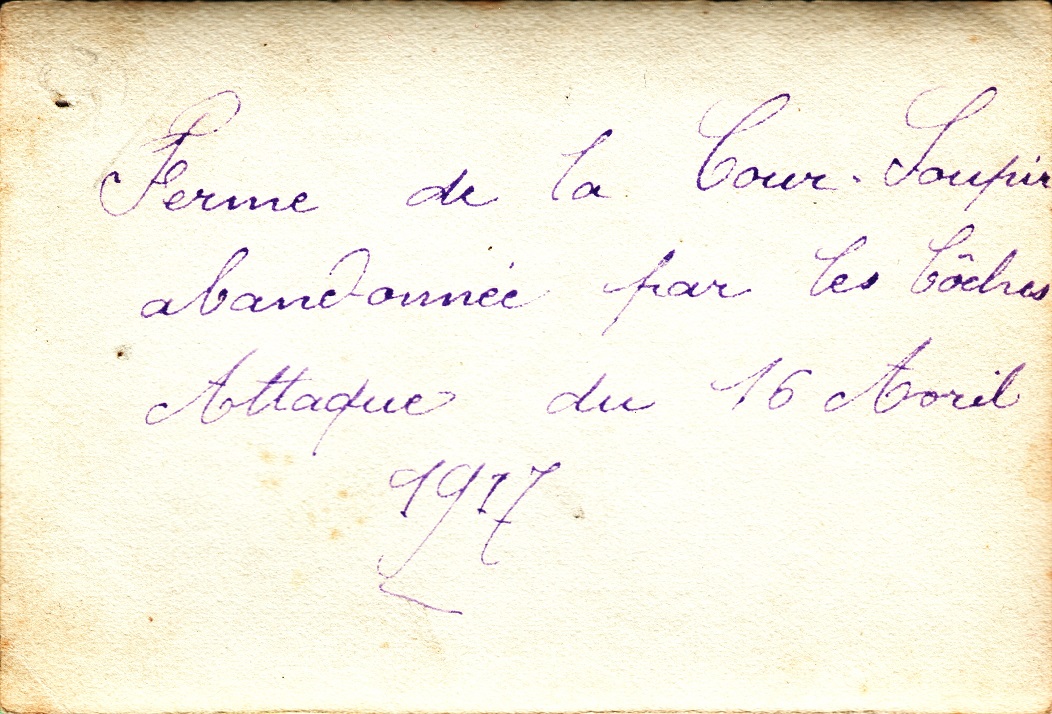 Ferme de la Cour-Soupir
abandonnée par les bôches
Attaque du 16 Avril
1917